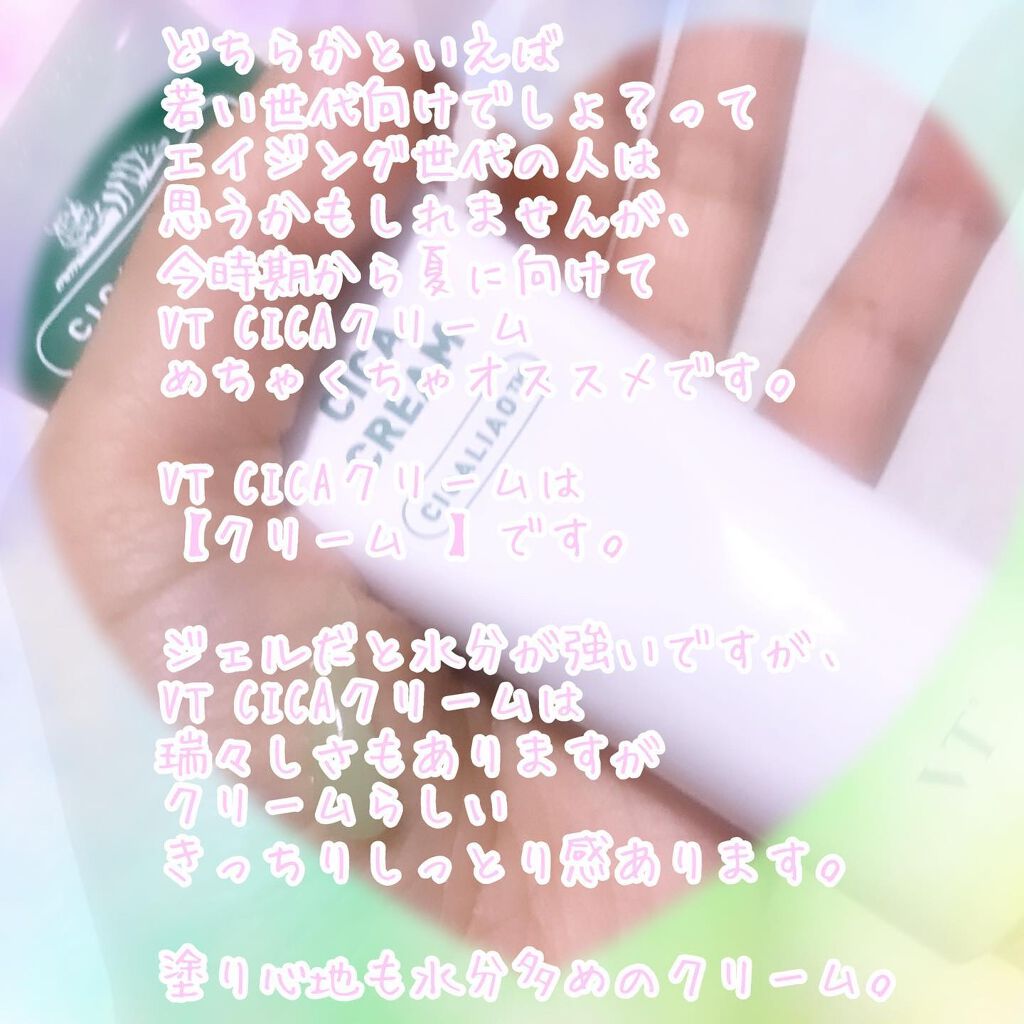 どちらかといえば
若い世代向けでしょ？って
エイジング世代の人は
思うかもしれませんが、
今時期から夏に向けて
VT CICAクリーム
めちゃくちゃオススメです。
VT CICAクリームは
【クリーム 】です。
ジェルだと水分が強いですが、
VT CICAクリームは
瑞々しさもありますが
クリームらしい
きっちりしっとり感あります。
塗り心地も水分多めのクリーム。
CICA
CREAM
CICALIAO™
VT